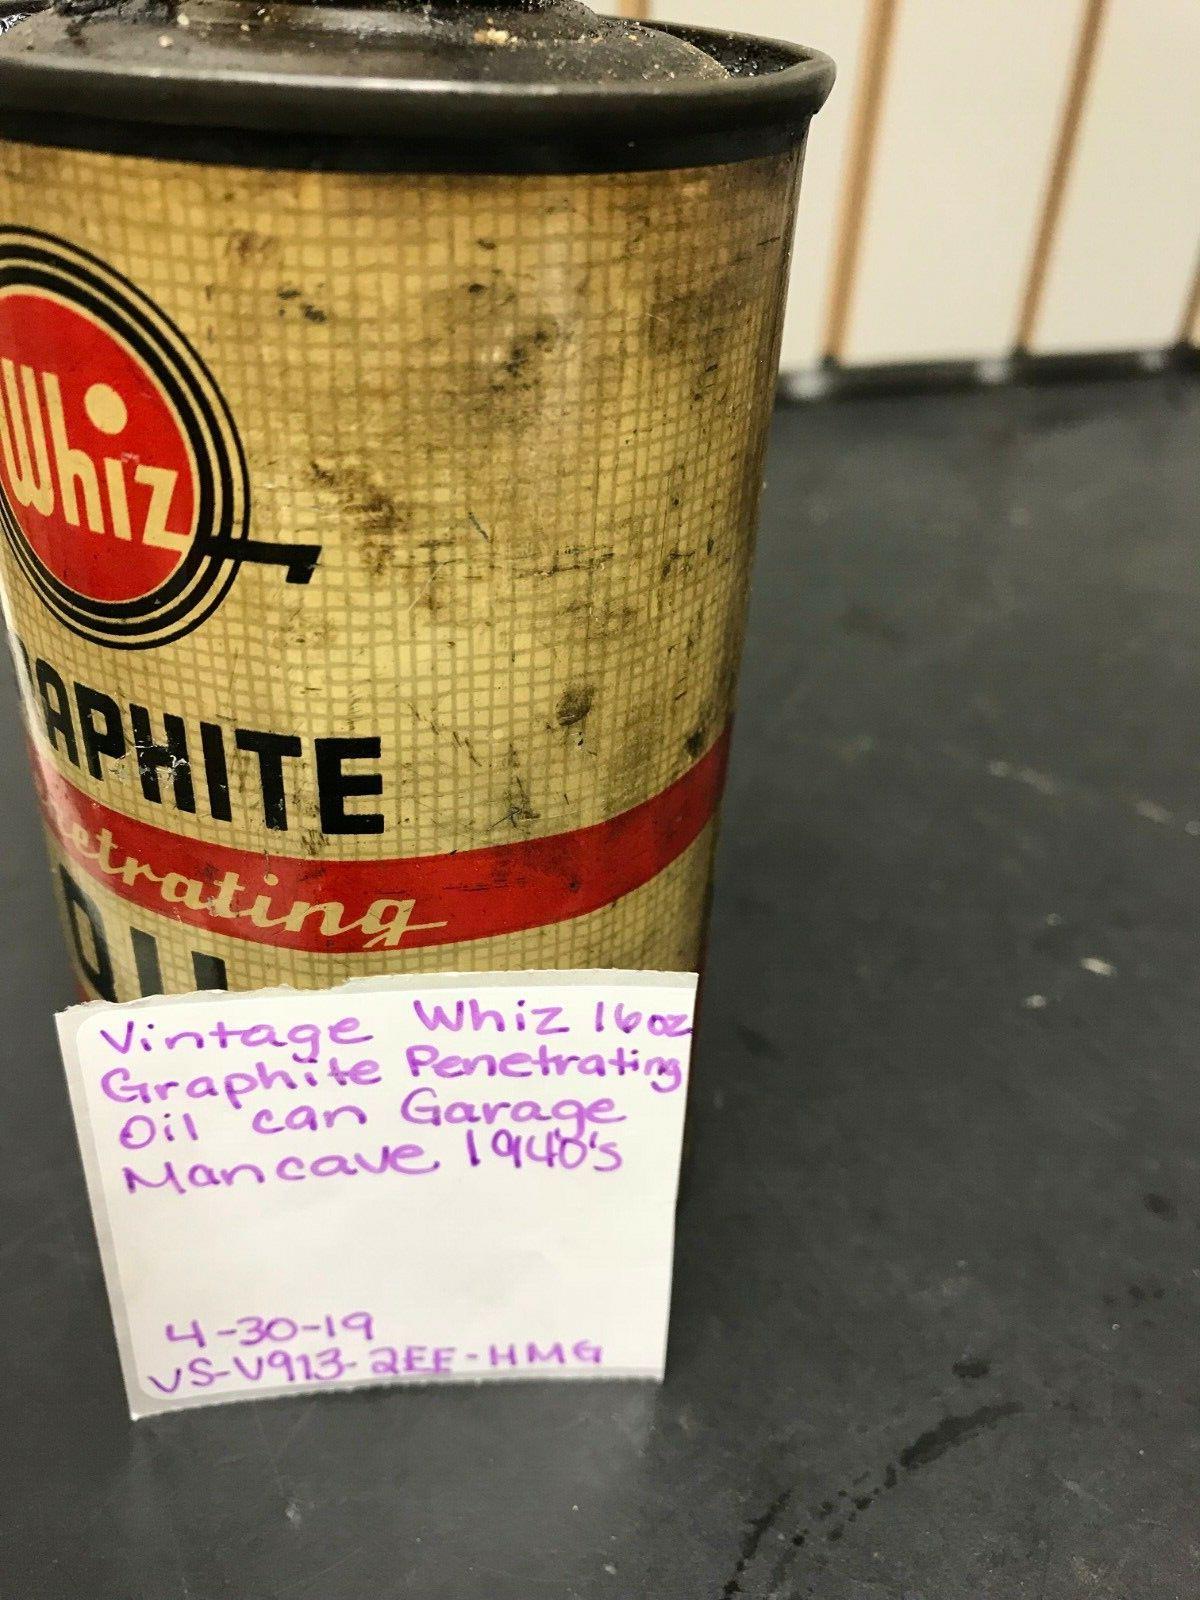 Whiz
RAPHITE
etrating
OIL
Vintage Whiz 16oz
Graphite Penetrating
Oil can Garage
Mancave 1940's
4-30-19
VS-V913-2EE-HMG